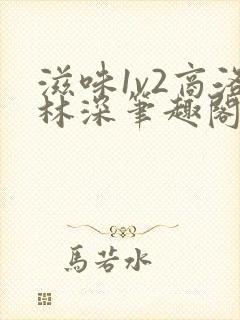 滋味1v2高洛
林深笔趣阁
馬若水